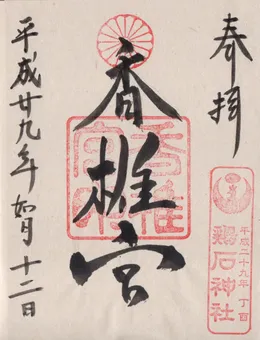 奉拝
香椎宮
香椎宮印
平成廿九年 如月 十二日
平成二十九年 丁酉
鶏石神社